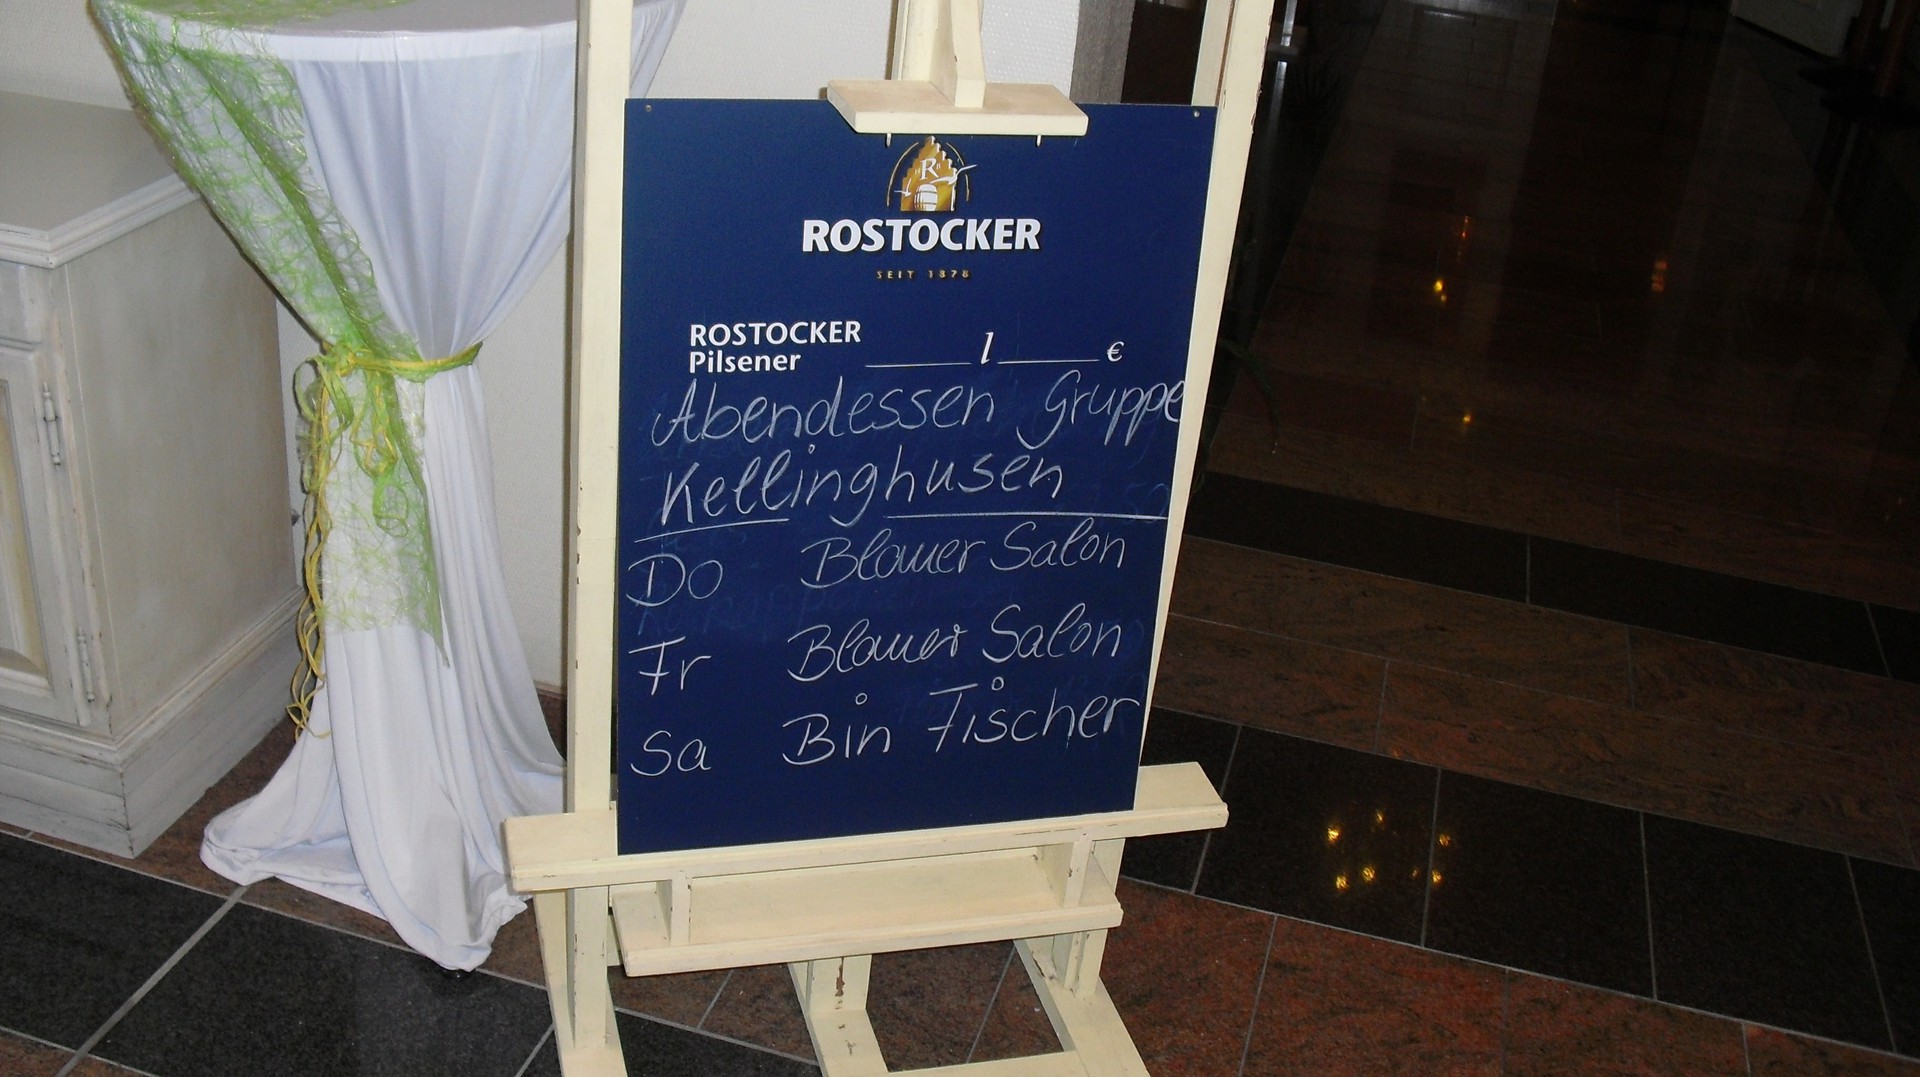 R
ROSTOCKER
SEIT 1878
ROSTOCKER
Pilsener ______ l ______ €
Abendessen Gruppe
Kellinghusen
Do Blauer Salon
Fr Blauer Salon
Sa Bin Fischer